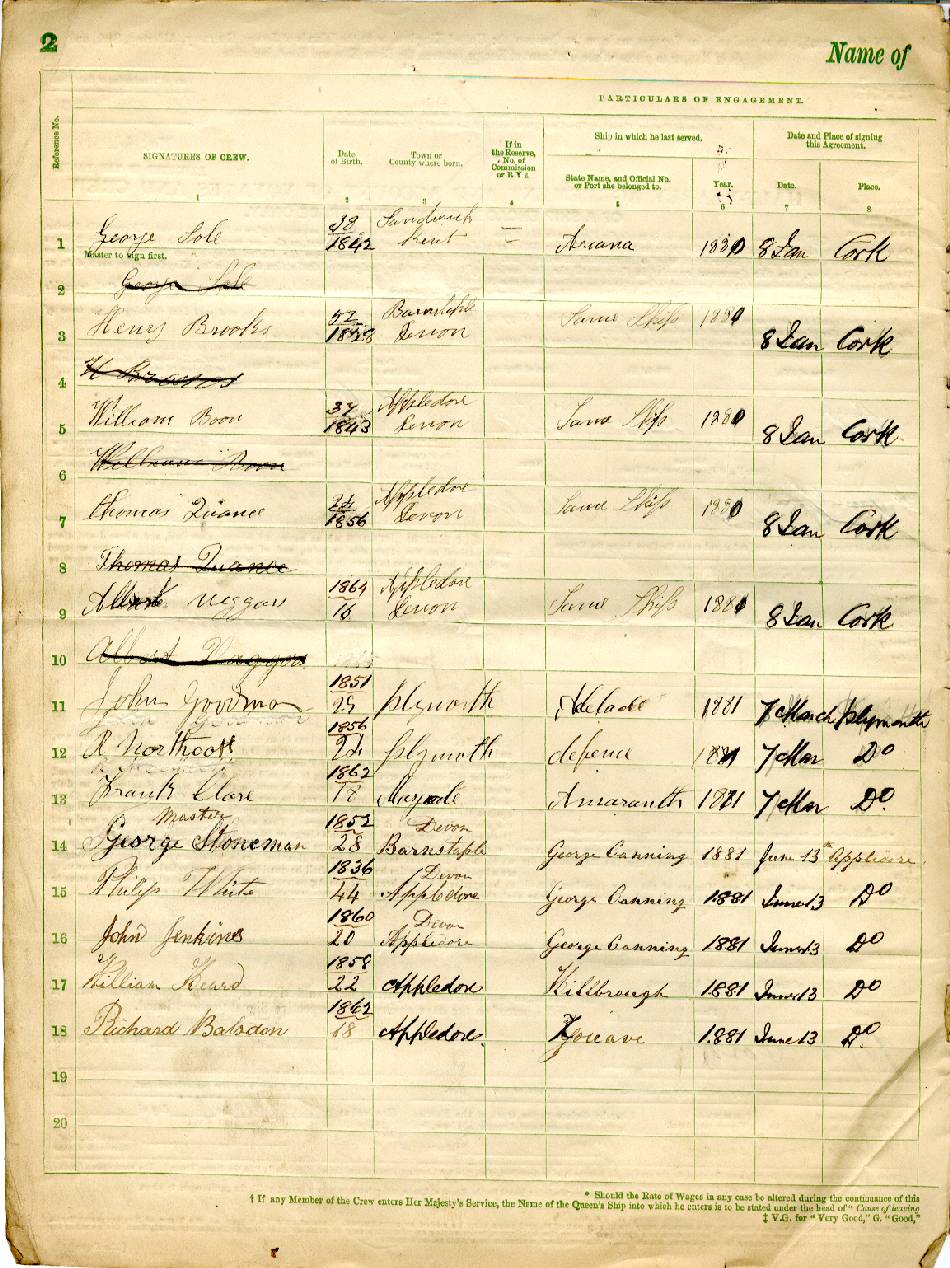 2
Name of
PARTICULARS OF ENGAGEMENT.
Reference No.
SIGNATURES OF CREW.
Date of Birth.
Town or County where born.
If in the Reserve, No. of Commission or R.V 2.
Ship in which he last served.
State Name, and Official No. or Port she belonged to.
Year.
Date and Place of signing this Agreement.
Date.
Place.
1 2 3 4 5 6 7 8
1 George Sole 38 1842 Sandwich Kent — Ariana 1880 8 Jan Cork
Master to sign first.
2 George Sole
3 Henry Brooks 52 Barnstaple Devon Same Ship 1880 8 Jan Cork
4
5 William Boon 37 1843 Appledore Devon Same Ship 1880 8 Jan Cork
6 William Boon
7 Thomas Quance 24 1856 Appledore Devon Same Ship 1880 8 Jan Cork
8 Thomas Quance
9 Albert 1864 16 Appledore Devon Same Ship 188 8 Jan Cork
10 Albert
11 John Goodman 1851 29 Plymouth Adelade 1881 7 March Plymouth
12 R Northcott 1856 24 Plymouth defence 1881 7 Mar Do
13 Frank Clare 1862 18 Amaranth 1881 7 Mar Do
Master
14 George Stoneman 1852 28 Devon Barnstaple George Canning 1881 June 13 Appledore
15 Philip White 1836 44 Devon Appledore George Canning 1881 June 13 Do
16 John Jenkins 1860 20 Devon Appledore George Canning 1881 June 13 Do
17 William Heard 1858 22 Appledore 1881 June 13 Do
18 Richard Balsdon 1862 18 Appledore 1881 June 13 Do
19
20
* Should the Rate of Wages in any case be altered during the continuance of this
† If any Member of the Crew enters Her Majesty's Service, the Name of the Queen's Ship into which he enters is to be stated under the head of "Cause of leaving
‡ V.G. for "Very Good," G. "Good,"